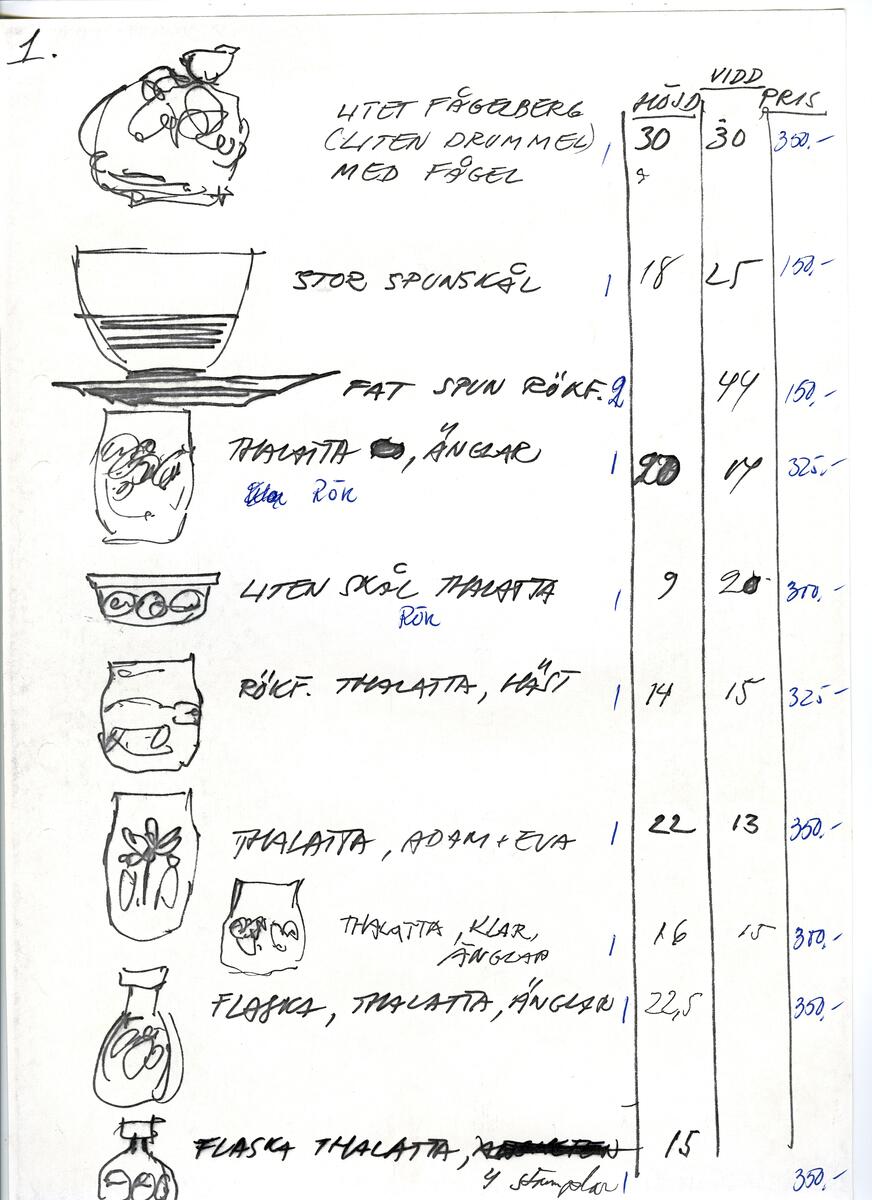 1.
HÖJD VIDD PRIS
LITET FÅGELBERG
(LITEN DRUMMEL) 1 30 30 350,-
MED FÅGEL
STOR SPUNSKÅL 1 18 25 150,-
FAT SPUN RÖKF. 2 44 150,-
THALATTA , ÄNGLAR 1 20 14 325,-
RÖK
LITEN SKÅL THALATTA 1 9 20 300,-
RÖK
RÖKF. THALATTA, HÄST 1 14 15 325,-
THALATTA, ADAM + EVA 1 22 13 350,-
THALATTA, KLAR, 1 16 15 300,-
ÄNGLAR
FLASKA, THALATTA, ÄNGLAR 1 22,5 350,-
FLASKA THALATTA, 15
4 stämplar 1 350,-